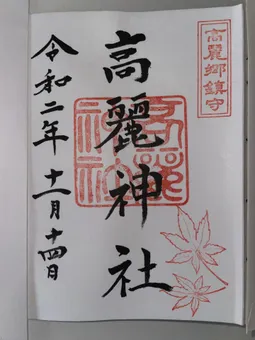 高麗郷鎮守
高麗神社
令和二年十一月十四日